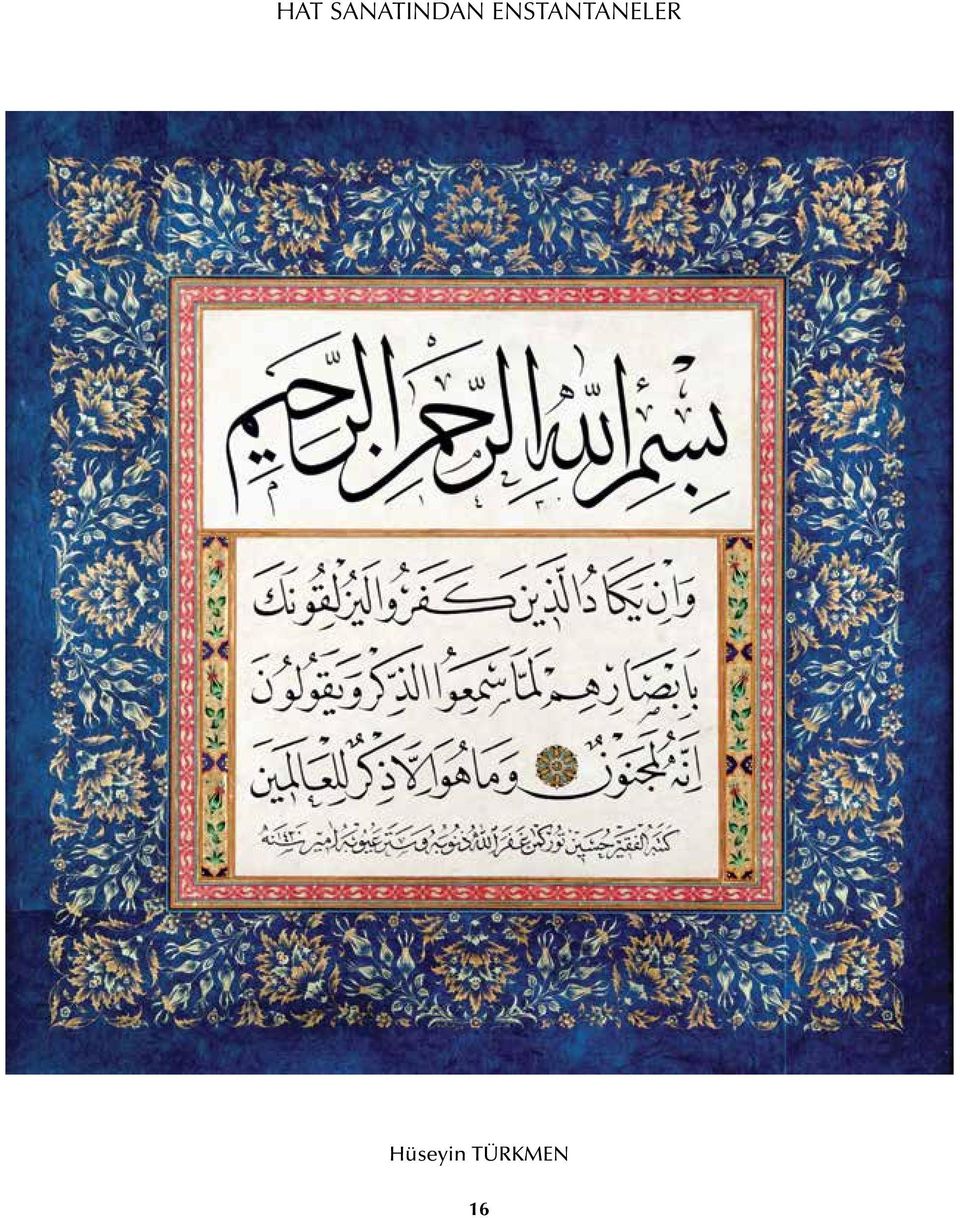 HAT SANATINDAN ENSTANTANELER
بِسْمِ اللّٰهِ الرَّحْمٰنِ الرَّحِيمِ
وَاِنْ يَكَادُ الَّذِينَ كَفَرُوا لَيُزْلِقُونَكَ
بِاَبْصَارِهِمْ لَمَّا سَمِعُوا الذِّكْرَ وَيَقُولُونَ
اِنَّهُ لَمَجْنُونٌ وَمَا هُوَ اِلَّا ذِكْرٌ لِلْعَالَمِينَ
كتبه الفقير حسين تورکمن غفر الله ذنوبه وستر عيوبه آمين سنه
Hüseyin TÜRKMEN
16